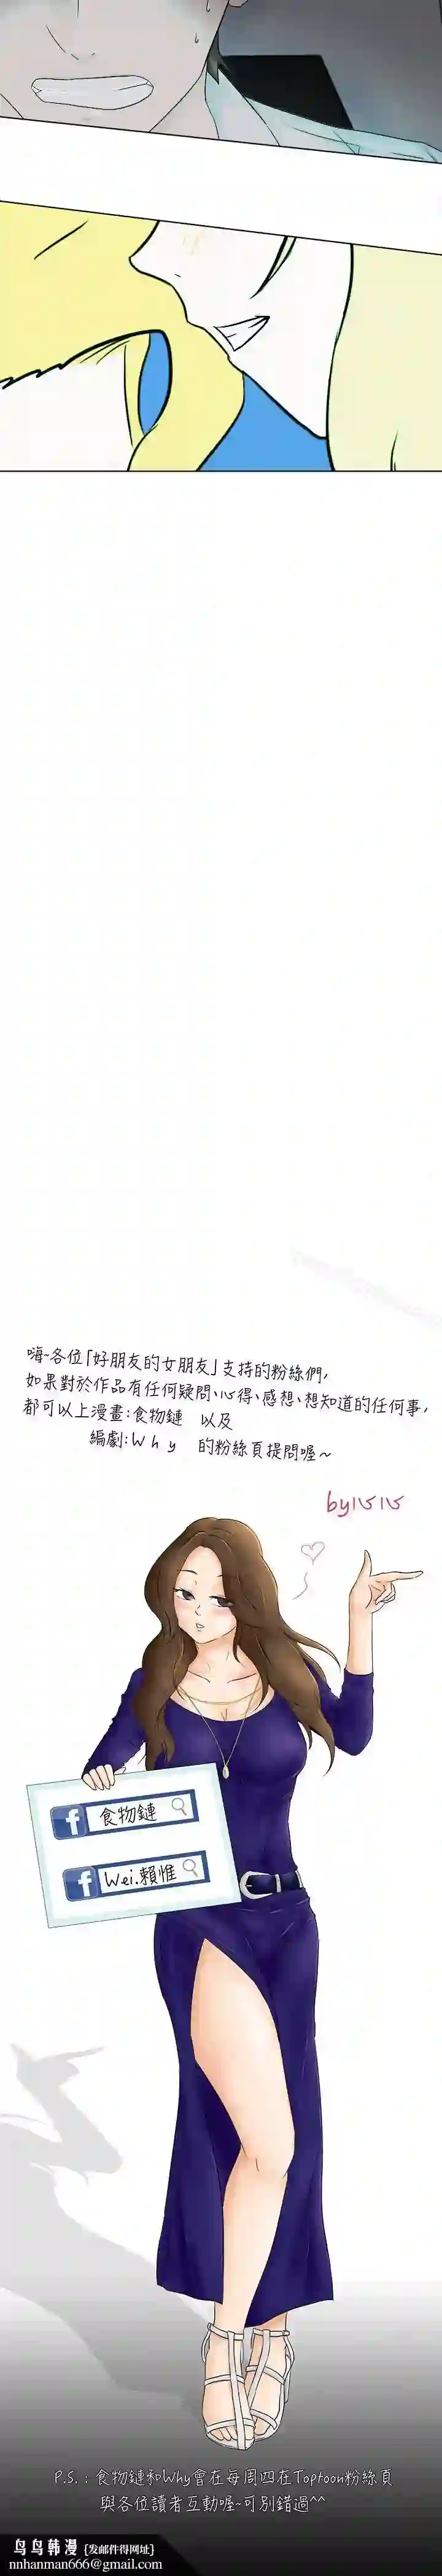 嗨~各位「好朋友的女朋友」支持的粉絲們,
如果對於作品有任何疑問、心得、感想、想知道的任何事,
都可以上漫畫:食物鏈 以及
編劇:Why 的粉絲頁提問喔~
by
f 食物鏈
f Wei.賴惟
P.S.:食物鏈和Why會在每周四在Toptoon粉絲頁
與各位讀者互動喔~可別錯過^^
鸟鸟韩漫 [发邮件得网址]
nnhanman666@gmail.com